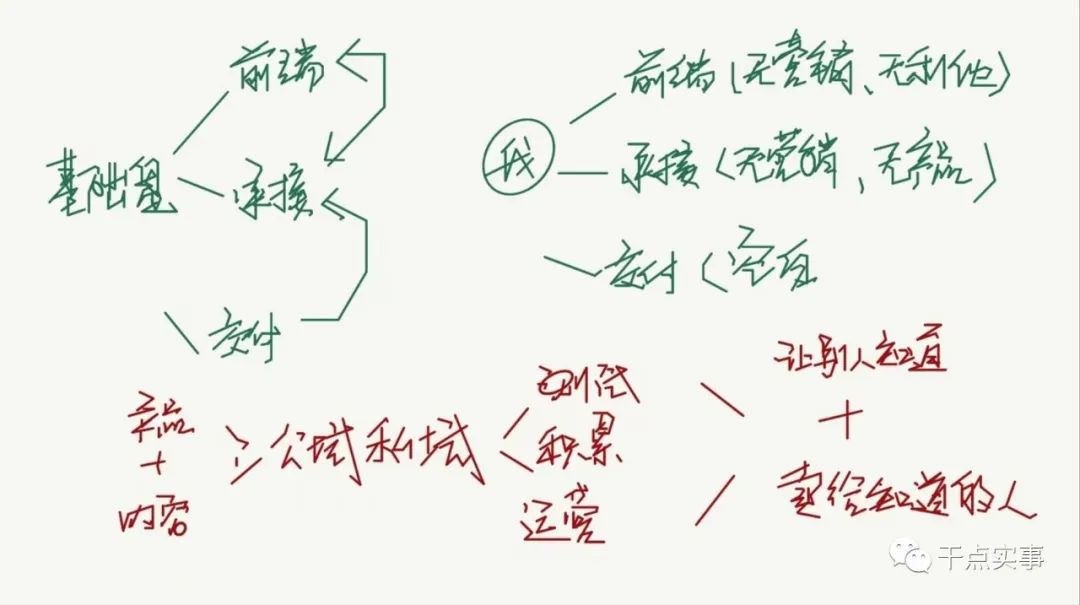 前端
基础是
承接
交付
我
前端(无营销、无利他)
承接(无营销,无产品)
交付(
产品
+
内容
公域私域
测试
积累
运营
让别人知道
+
卖给知道的人
干点实事